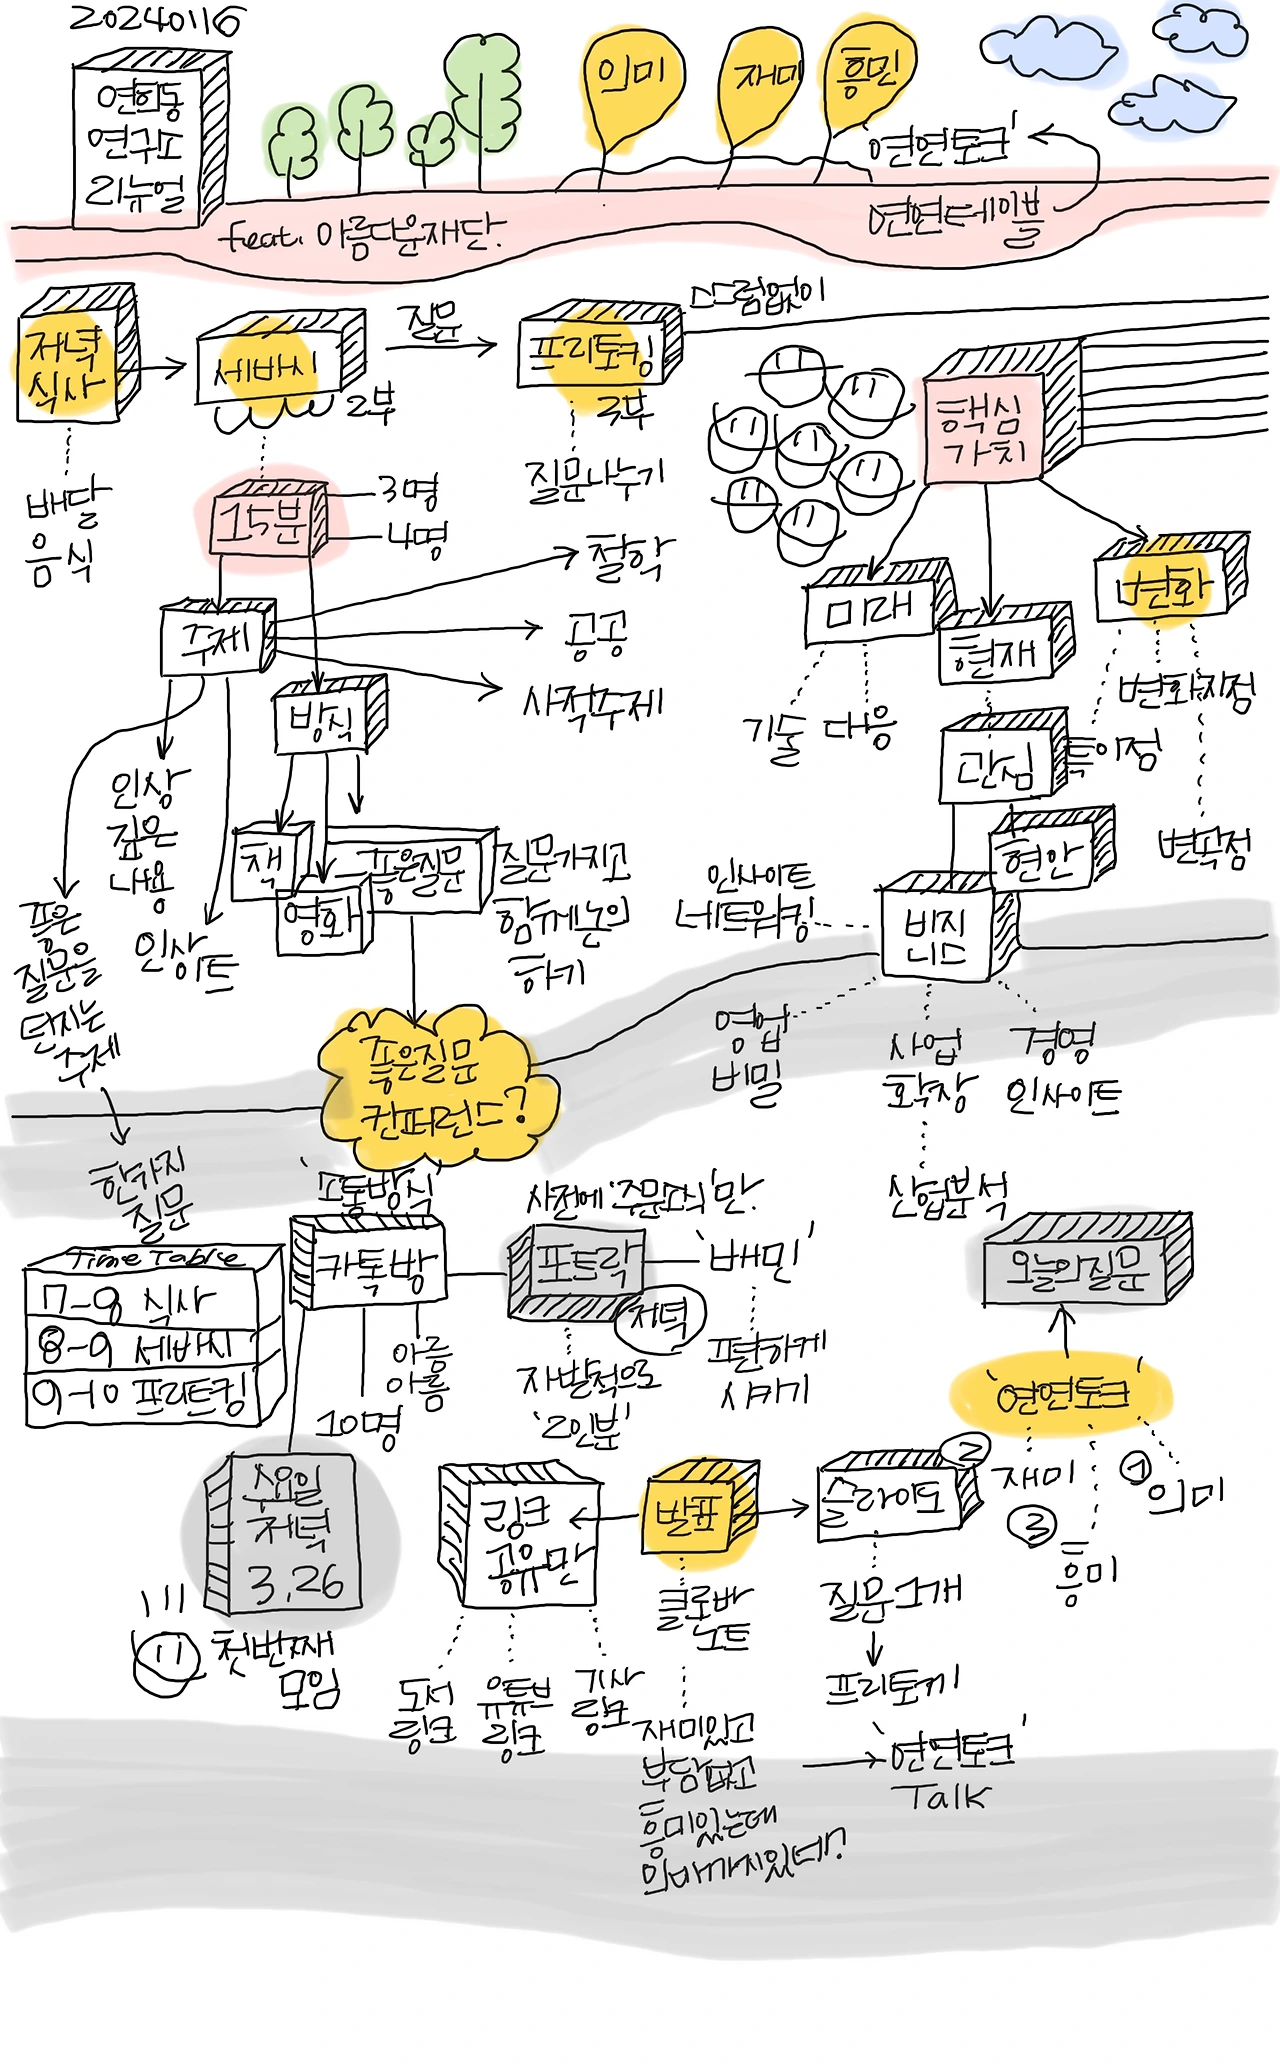 20240116
연희동
연구소
리뉴얼
의미
재미
흥미
'연연토크'
feat. 아름다운재단.
연연테이블
저녁
식사
세바시
2부
질문
프리토킹
3부
스크럼없이
배달
음식
15분
3명
4명
질문나누기
핵심
가치
주제
철학
공공
사적주제
방식
미래
현재
변화
기술 대응
관심
특이점
변화지점
변곡점
현안
인상
깊은
내용
인사이트
책
영화
좋은질문
질문가지고
함께논의
하기
좋은
질문을
던지는
주제
한가지
질문
인사이트
네트워킹
비지
니스
영업
비밀
사업
확장
경영
인사이트
산업분석
좋은질문
컨퍼런스?
'소통방식'
카톡방
10명
아름
아름
사전에 '주문음식'만.
포트락
저녁
'배민'
편하게
시키기
자발적으로
'2인분'
Time Table
7-8 식사
8-9 세바시
9-10 프리토킹
오늘의질문
'연연토크'
재미
③
흥미
①
의미
수요일
저녁
3.26
첫번째
모임
링크
공유만
발표
슬라이도
②
도서
링크
유튜브
링크
기사
링크
클로바
노트
질문1개
프리토키
재미있고
부담없고
흥미있는데
의미까지있데?
'연연토크'
Talk